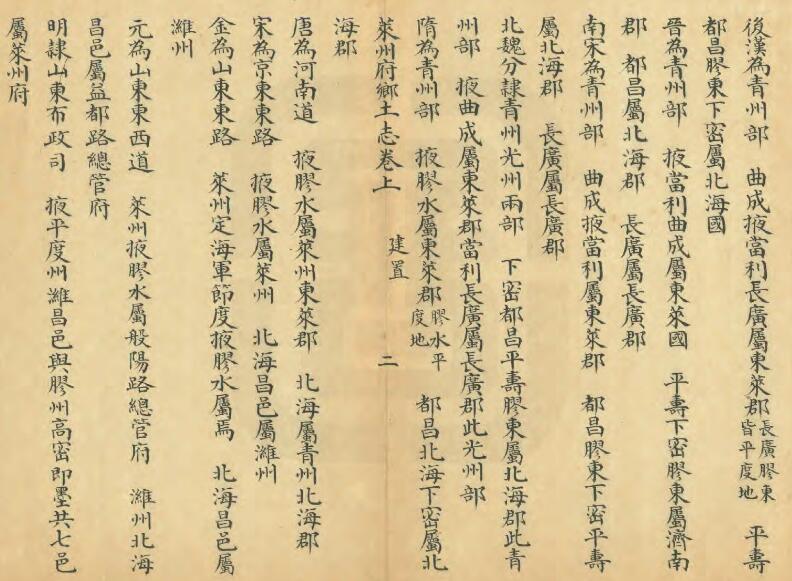 後漢為青州部　曲成掖當利長廣屬東萊郡長廣膠東皆平度地　平壽
都昌膠東下密屬北海國
晉為青州部　掖當利曲成屬東萊國　平壽下密膠東屬濟南
郡　都昌屬北海郡　長廣屬長廣郡
南宋為青州部　曲成掖當利屬東萊郡　都昌膠東下密平壽
屬北海郡　長廣屬長廣郡
北魏分隸青州光州兩部　下密都昌平壽膠東屬北海郡此青
州部　掖曲成屬東萊郡當利長廣屬長廣郡此光州部
隋為青州部　掖膠水屬東萊郡膠水平度地　都昌北海下密屬北
萊州府鄉土志卷上　建置　二
海郡
唐為河南道　掖膠水屬萊州東萊郡　北海屬青州北海郡
宋為京東東路　掖膠水屬萊州　北海昌邑屬濰州
金為山東東路　萊州定海軍節度掖膠水屬焉　北海昌邑屬
濰州
元為山東東西道　萊州掖膠水屬般陽路總管府　濰州北海
昌邑屬益都路總管府
明隸山東布政司　掖平度州濰昌邑與膠州高密即墨共七邑
屬萊州府